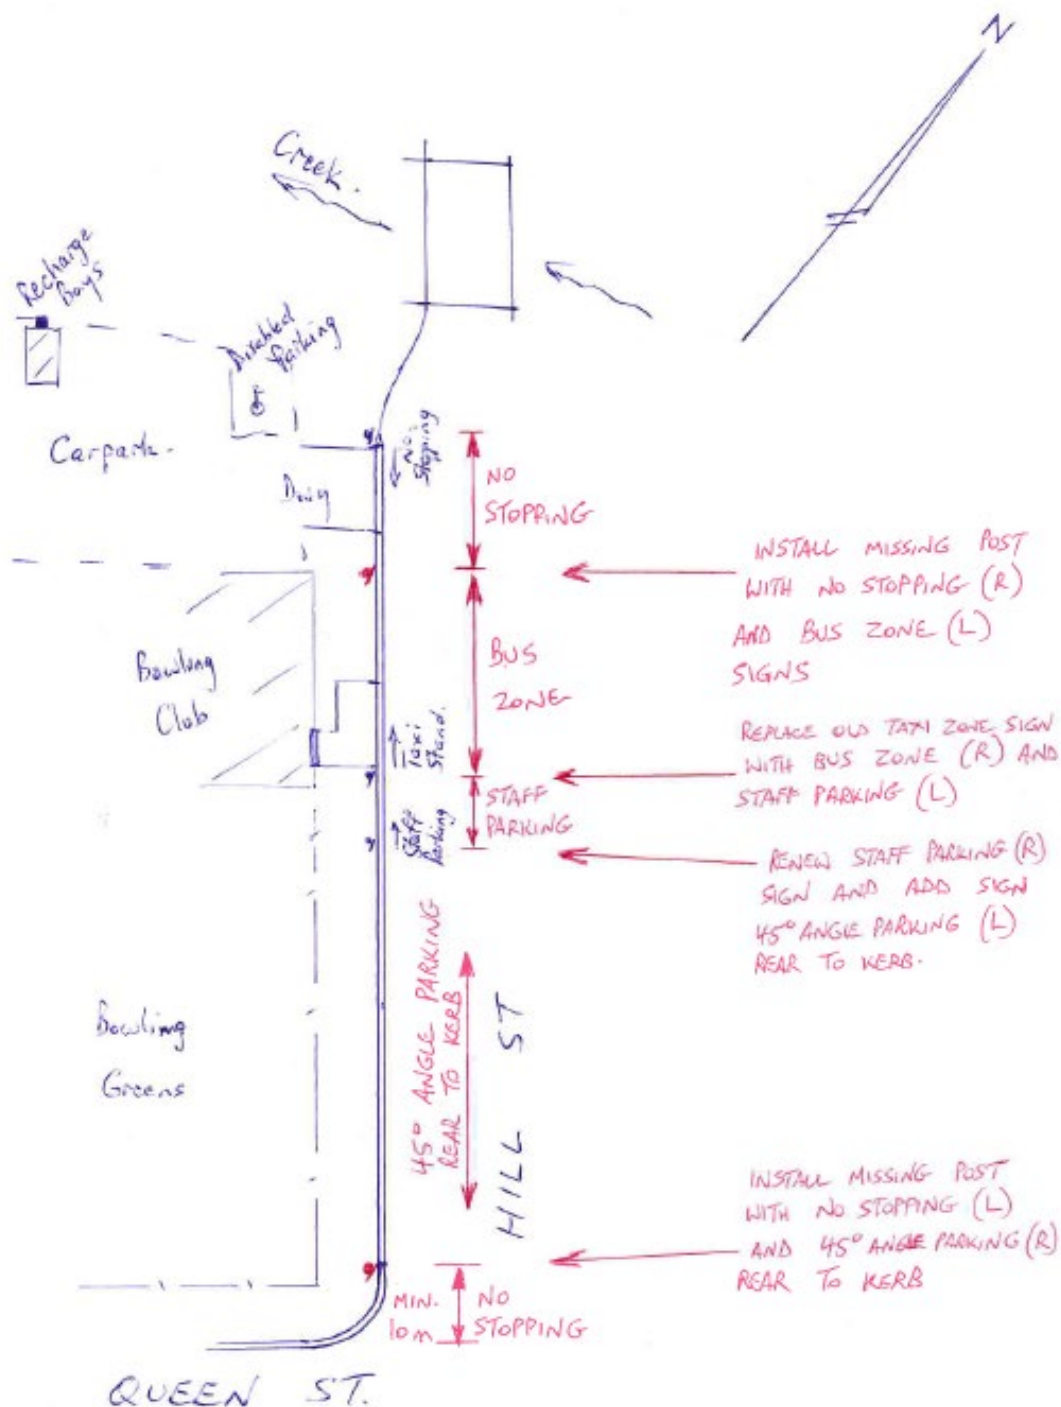 N
Creek.
Recharge
Bays
Disabled
Parking
Carpark.
No
Stopping
NO
STOPPING
INSTALL MISSING POST
WITH NO STOPPING (R)
AND BUS ZONE (L)
SIGNS
Bowling
Club
BUS
ZONE
Taxi
Stand.
REPLACE OLD TAXI ZONE SIGN
WITH BUS ZONE (R) AND
STAFF PARKING (L)
STAFF
PARKING
Staff
Parking
RENEW STAFF PARKING (R)
SIGN AND ADD SIGN
45° ANGLE PARKING (L)
REAR TO KERB.
45° ANGLE PARKING
REAR TO KERB
Bowling
Greens
HILL ST
INSTALL MISSING POST
WITH NO STOPPING (L)
AND 45° ANGLE PARKING (R)
REAR TO KERB
MIN.
10m
NO
STOPPING
QUEEN ST.